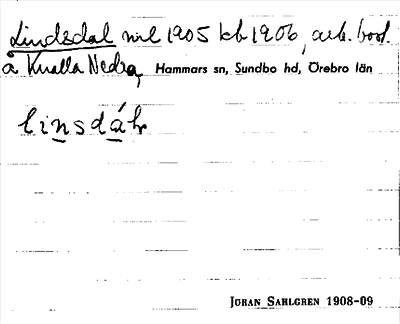 Lindsdal mil 1905 kb 1906, arb. bost.
å Knalla Nedra, Hammars sn, Sundbo hd, Örebro län
linsdáħ
JÖRAN SAHLGREN 1908-09